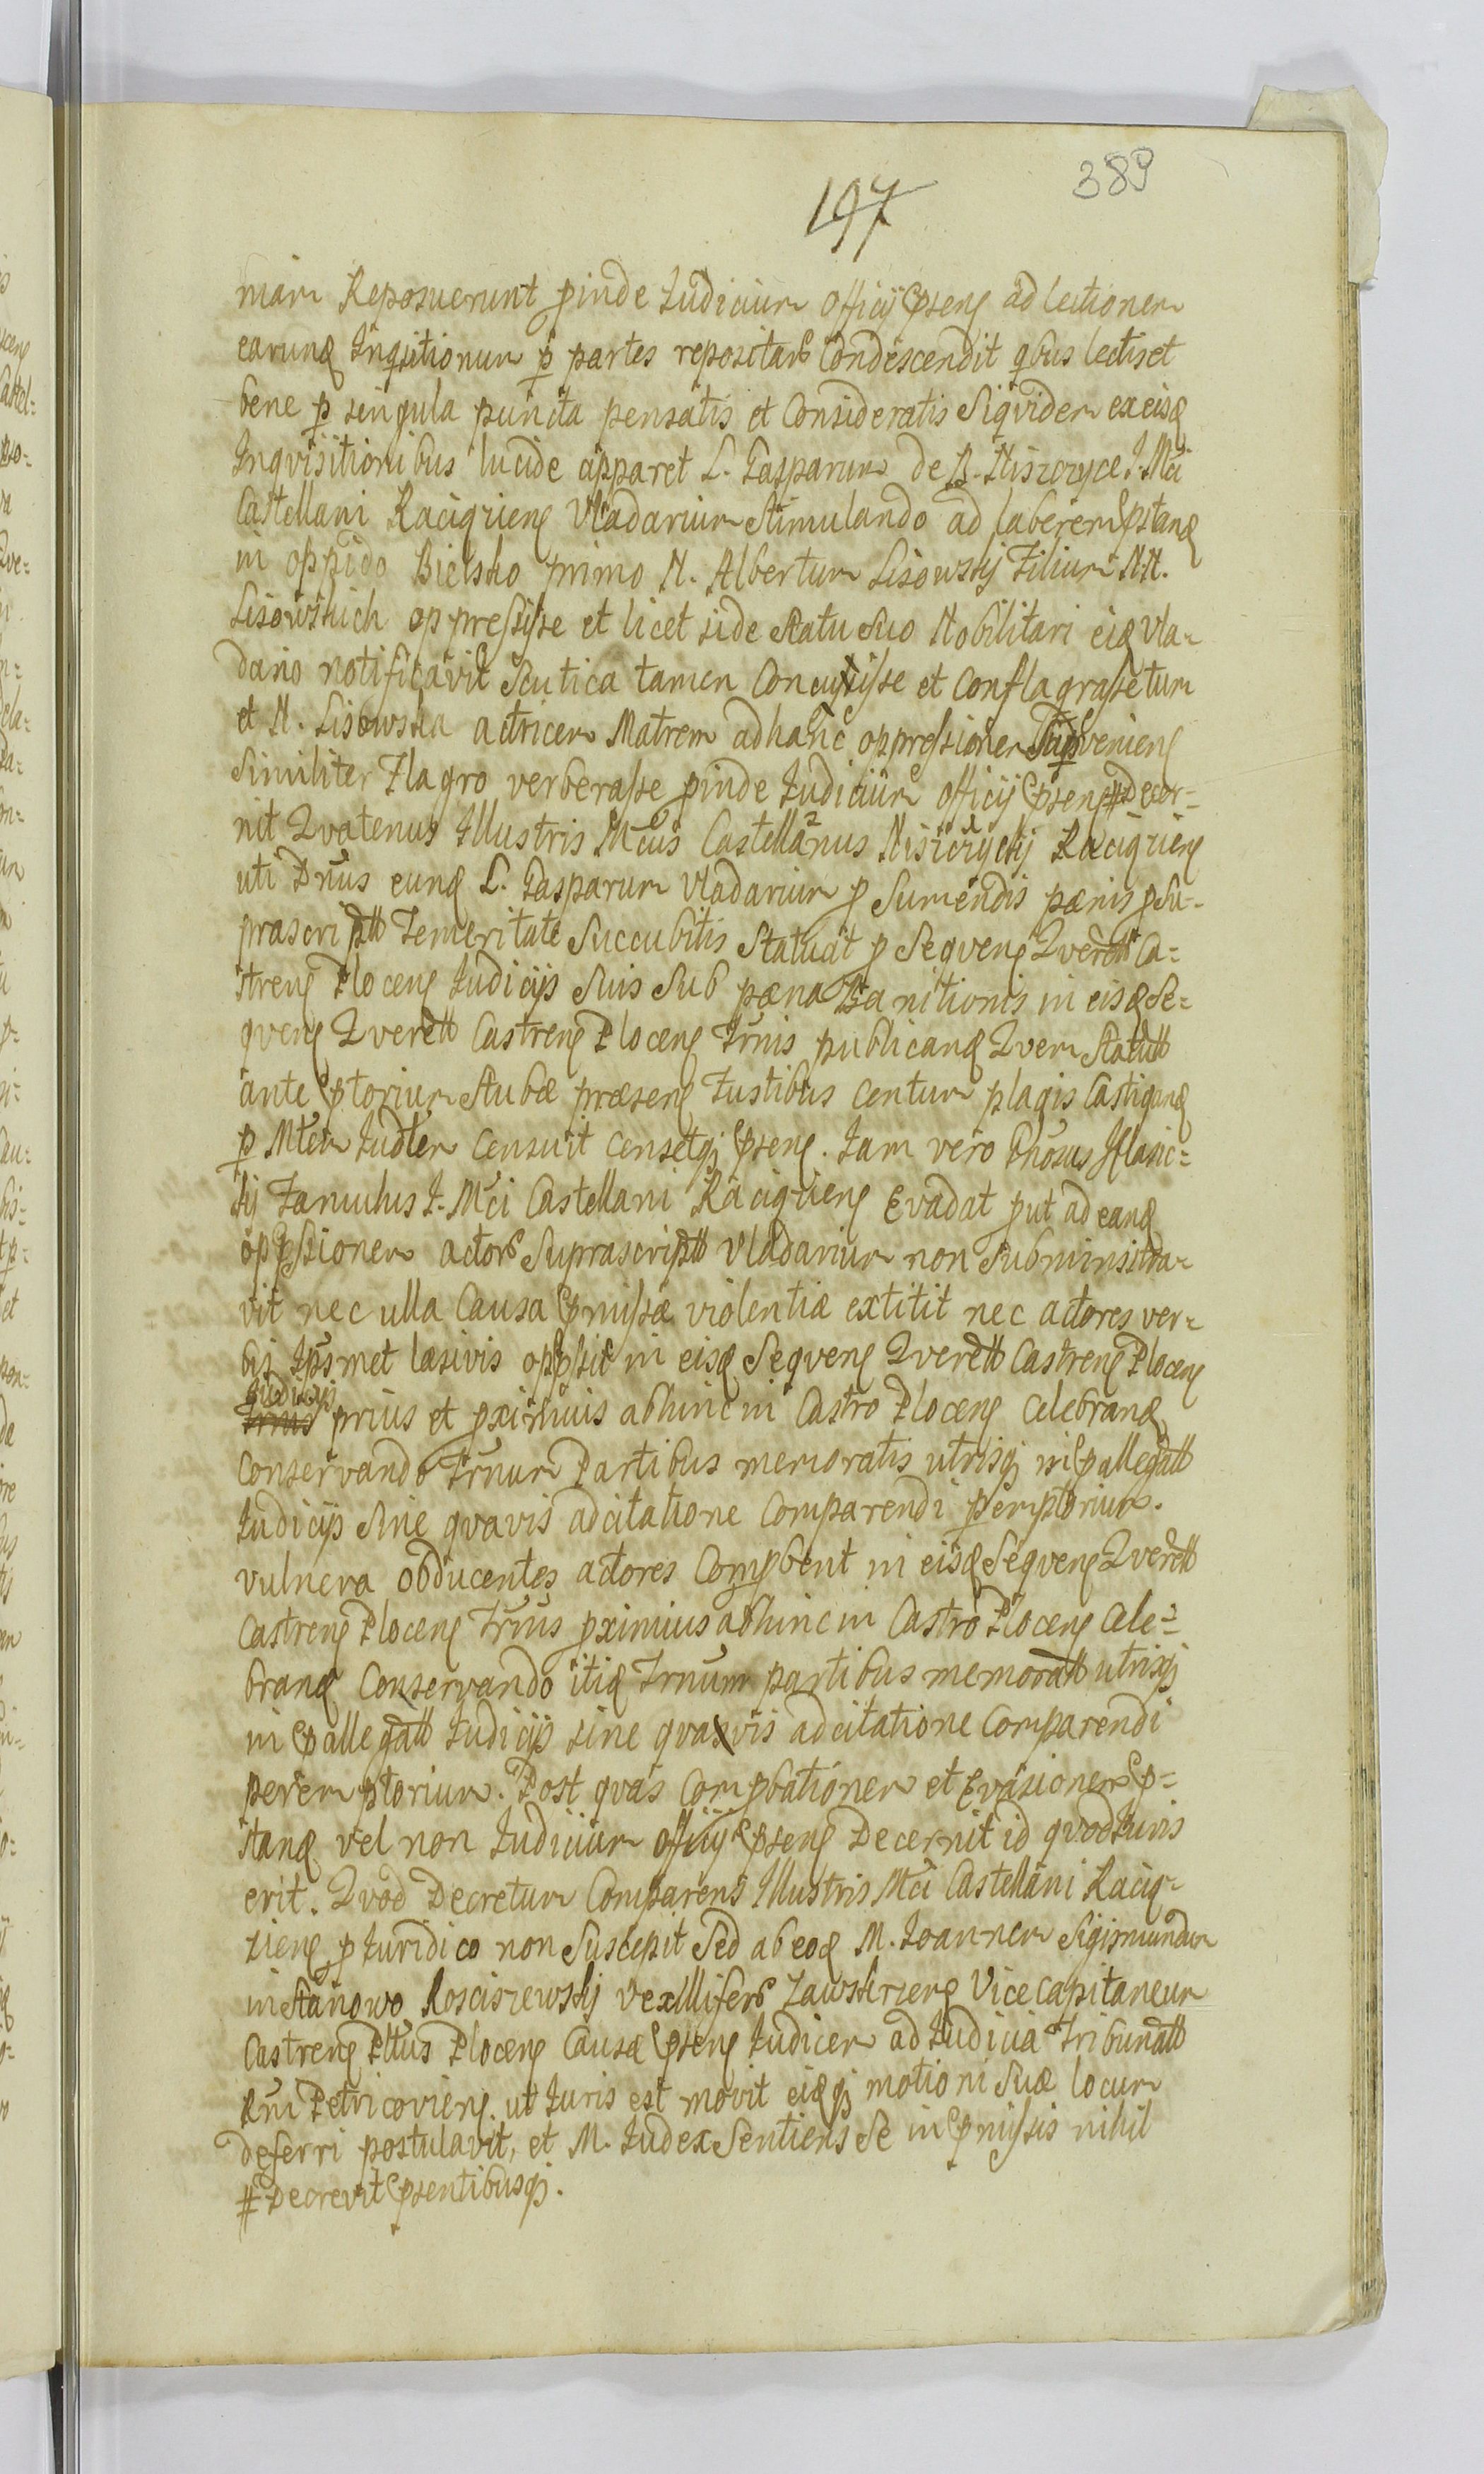 389
197
niam Reposuerunt pinde Judicium Officij pseng ad lectionem
earunq Inqsitionum p partes repositar Condescendit qbus lectis et
bene p singula puncta pensatis et Consideratis Siqvidem ex eisq
Inqvisitionibus lucide apparet L. Gasparum de B. Niszczyce J. Mci
Castellani Raciqzieng Vladarium Stimulando ad laborem pstanq
in oppido Bielsko primo N. Albertum Lisowskij Filium N.N.
Lisowskich oppressisse et licet side Statu Suo Nobilitari eiq Vla-
dario notificavit Scutica tamen Concussisse et Conflagrasse tum
et N. Lisowska actricem Matrem ad hanc oppressionem Supvenieng
Similiter Flagro verberasse pinde Judicium officij pseng # Decer-
nit Qvatenus Illustris Mcus Castellanus Niszczycki Raciqzieng
uti Dnus eunq L. Gasparum Vladarium p Sumendis pænis p Su-
prascriptt Temeritate Succubitis Statuat p Seqveng Qverett Ca=
streng Ploceng Judicijs Suis Sub pæna Banitionis in eisq Se=
qveng Qverett Castreng Ploceng Trnis publicanq Qvem Statutt
ante ptorium Stubæ præseng Fustibus Centum plagis Castiganq
p Mtem Judlem Censuit Censetqj pseng. Jam vero Ghosus
Famulus J. Mci Castellani Raciqzieng Evadat put ad eanq
oppssionem actor Suprascriptt Vladarium non Subministra-
vit nec ulla Causa pmissæ violentiæ extitit nec actores ver-
bis Ipsmet læsivis oppssit in eisq Seqveng Qverett Castreng Ploceng
Judicijs
prius et pximius abhinc in Castro Ploceng Celebranq
Conservando Trnum Partibus memoratis utrisqj in pallegatt
Judicijs Sine qvavis adcitatione Comparendi pemptorium.
vulnera obducentes actores Compbent in eisq Seqveng Qverett
Castreng Ploceng Trnis pximius abhinc in Castro Ploceng Cele=
branq Conservando itiq Trnum partibus memoratt utrisqj
in pallegatt Judicijs sine qvavis adcitatione Comparendi
peremptorium. Post qvas Compbationem et Evasionem p=
stanq vel non Judicium officij pseng Decernit id qvod Juris
erit. Qvod Decretum Comparens Illustris Mci Castellani Raciq-
zieng p Juridico non Suscepit Sed ab eoq M. Joannem Sigismundum
in Stanowo Kosciszewskij Vexillifer Zawskrzeng Vice Capitaneum
Castreng Pltus Ploceng Causæ pseng Judicem ad Judicia Tribunatt
Rni Petricovieng. ut Juris est movit eiqqj motioni Suæ locum
deferri postulavit, et M. Judex Sentiens Se in pmissis nihil
# Decrevit psentibusqj.